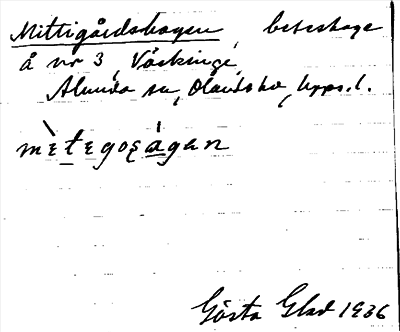 Mittigårdshagen, beteshage
å nr 3, Väskinge,
Alunda sn, Olands hd, Upps. l.
mètegoṣágan
Gösta Glad 1936